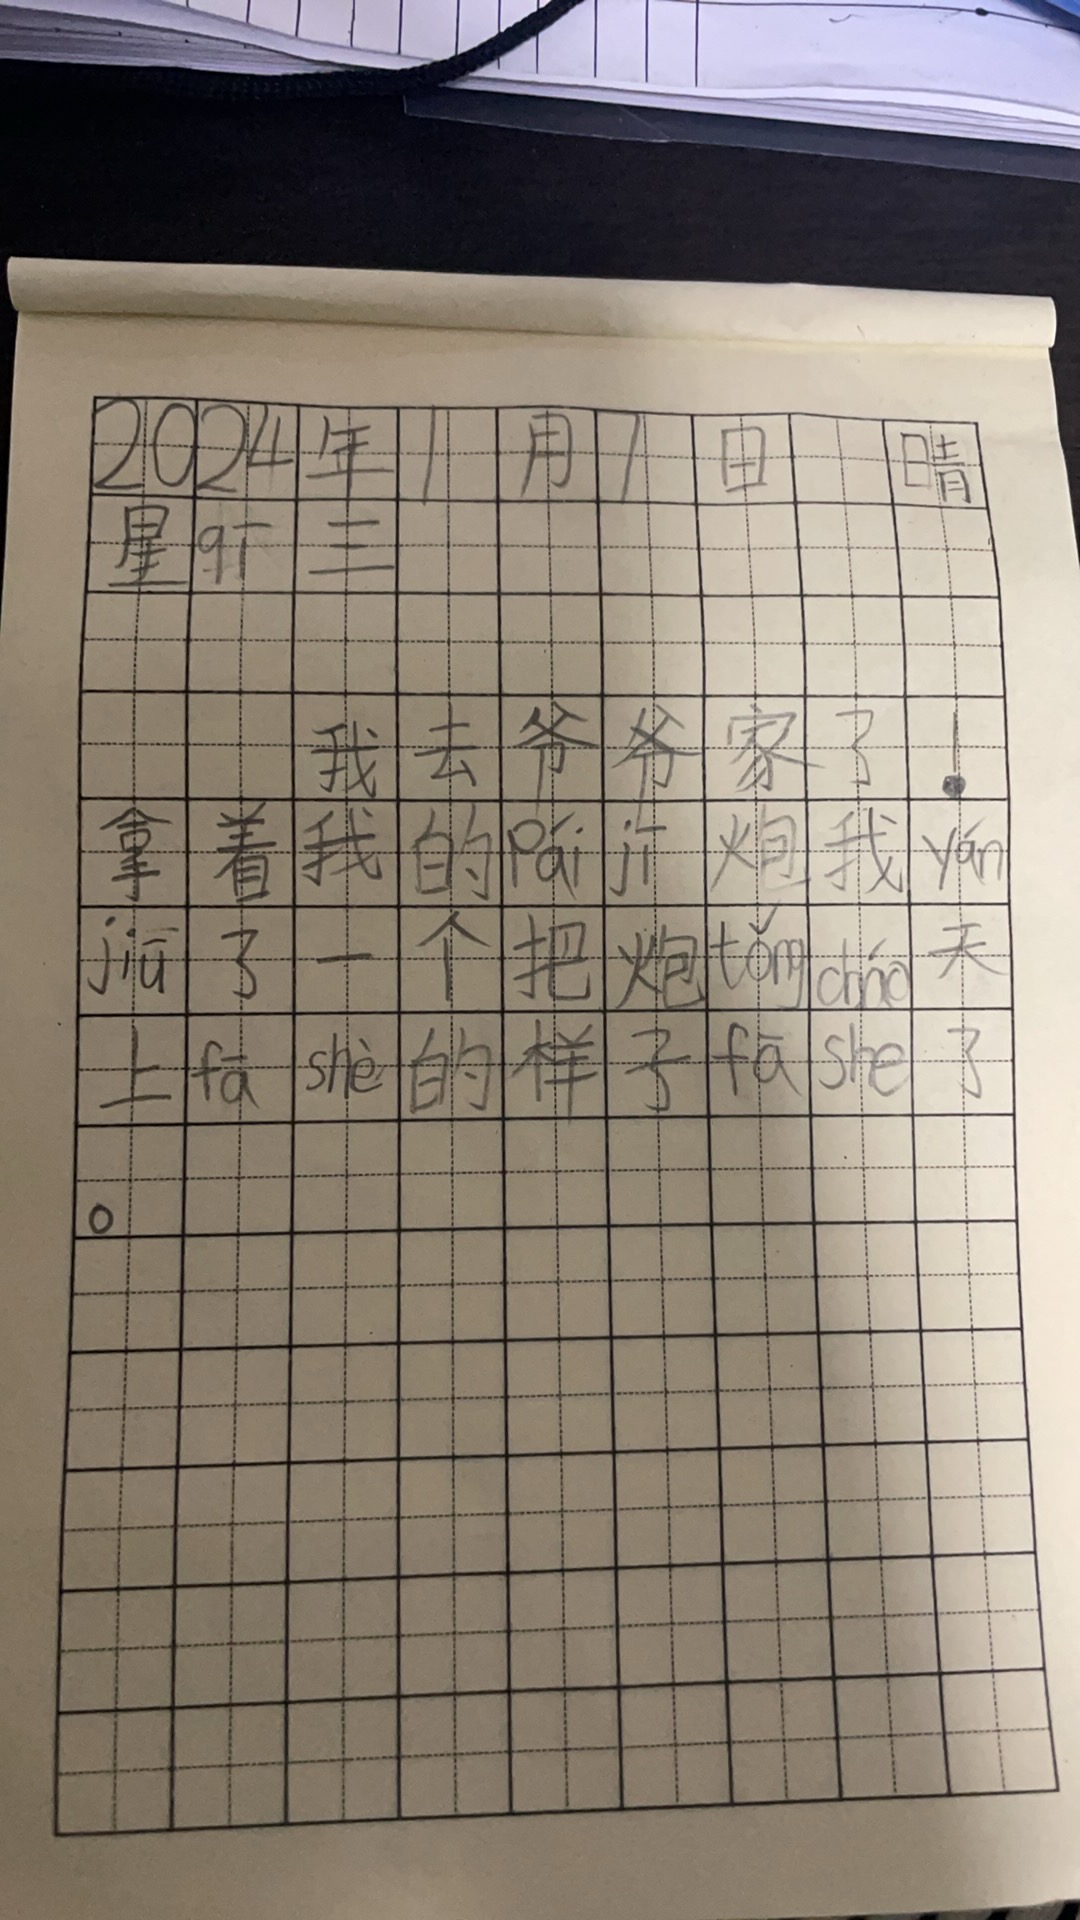 2024年1月1日 晴
星qī三
我去爷爷家了！
拿着我的Pái jī炮我yán
jiū了一个把炮tǒng cháo天
上fā shè的样子fā she了
。